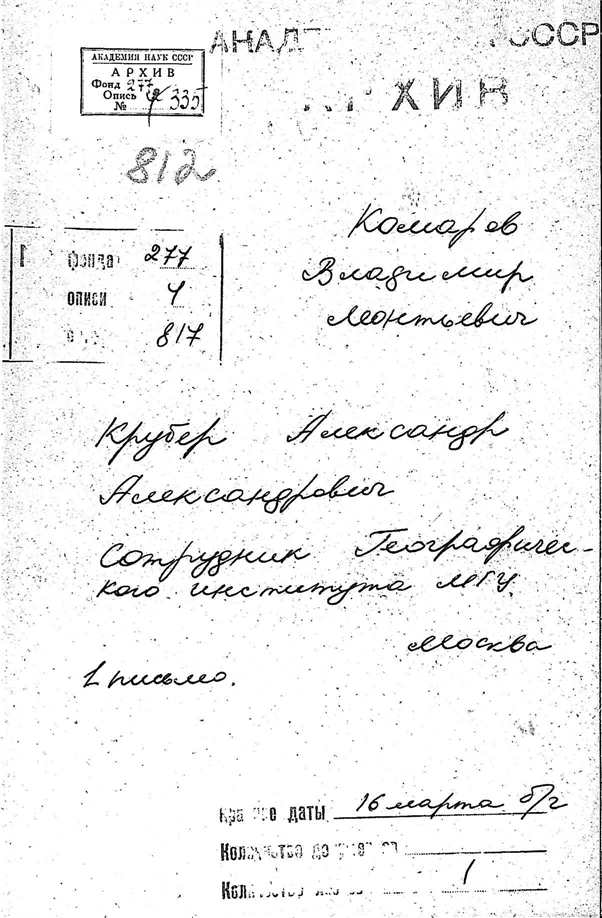 АКАДЕМИЯ НАУК СССР
АРХИВ
Фонд 277
Опись
№ 335
СССР
АРХИВ
812
фонда 277
описи 4
817
Комаров
Владимир
Леонтьевич
Крубер Александр
Александрович
Сотрудник Географичес-
кого института МГУ.
Москва
1 письмо.
Крайние даты 16 марта б/г
Количество
Количество 1